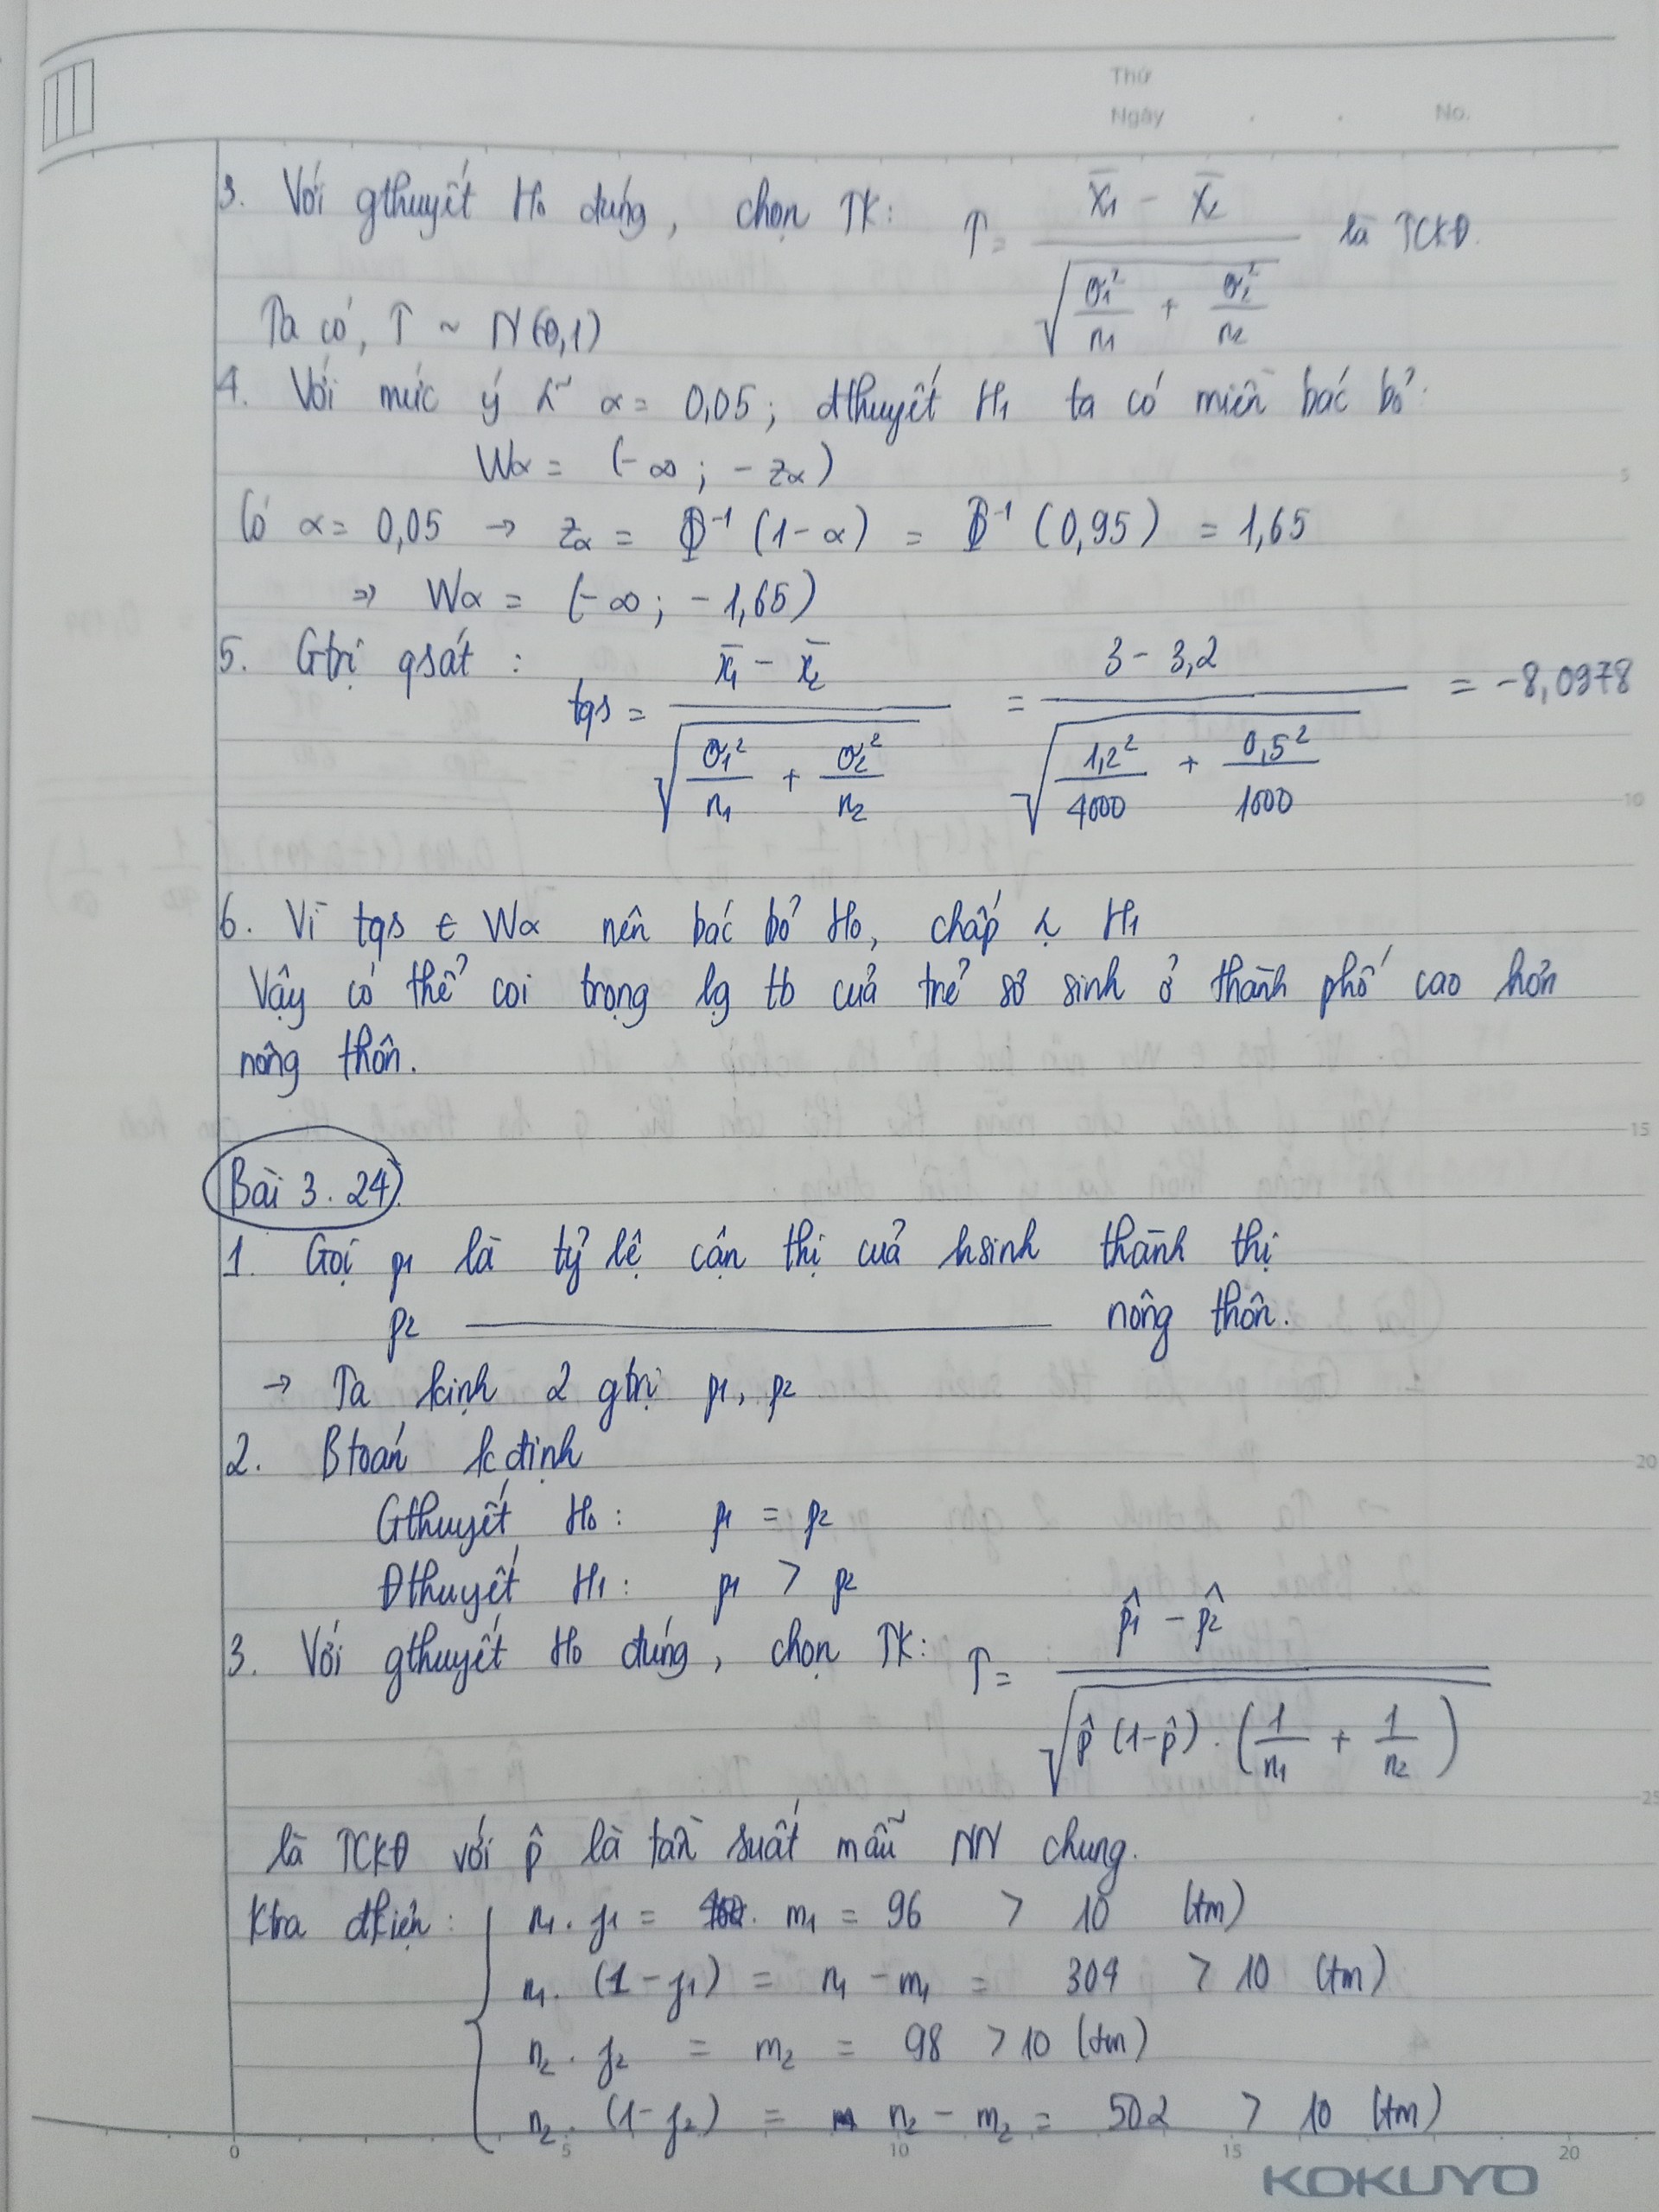 Thứ
Ngày . . No.
3. Với gthuyết H₀ đúng, chọn TK: T = (X̄₁ - X̄₂) / √(σ₁²/n₁ + σ₂²/n₂) là TCKĐ.
Ta có, T ~ N(0,1)
4. Với mức ý α = 0,05; đthuyết H₁ ta có miền bác bỏ:
Wα = (-∞; -zα)
Có α = 0,05 → zα = Φ⁻¹(1-α) = Φ⁻¹(0,95) = 1,65
⇒ Wα = (-∞; -1,65)
5. Gtrị qsát: tqs = (x̄₁ - x̄₂) / √(σ₁²/n₁ + σ₂²/n₂) = (3 - 3,2) / √(1,2²/4000 + 0,5²/1000) = -8,0978
6. Vì tqs ∈ Wα nên bác bỏ H₀, chấp H₁
Vậy có thể coi trọng lg tb của trẻ sơ sinh ở thành phố cao hơn
nông thôn.
Bài 3.24
1. Gọi p₁ là tỷ lệ cận thị của hsinh thành thị
p₂ ———— nông thôn.
→ Ta kịnh 2 gtrị p₁, p₂
2. Btoán kđịnh
Gthuyết H₀: p₁ = p₂
Đthuyết H₁: p₁ > p₂
3. Với gthuyết H₀ đúng, chọn TK: T = (p̂₁ - p̂₂) / √(p̂(1-p̂).(1/n₁ + 1/n₂))
là TCKĐ với p̂ là tần suất mẫu NN chung.
Ktra đkiện: n₁.f₁ = m₁ = 96 > 10 (tm)
n₁.(1-f₁) = n₁ - m₁ = 304 > 10 (tm)
n₂.f₂ = m₂ = 98 > 10 (tm)
n₂.(1-f₂) = n₂ - m₂ = 502 > 10 (tm)
5
10
15
20
25
0 5 10 15 20
KOKUYO